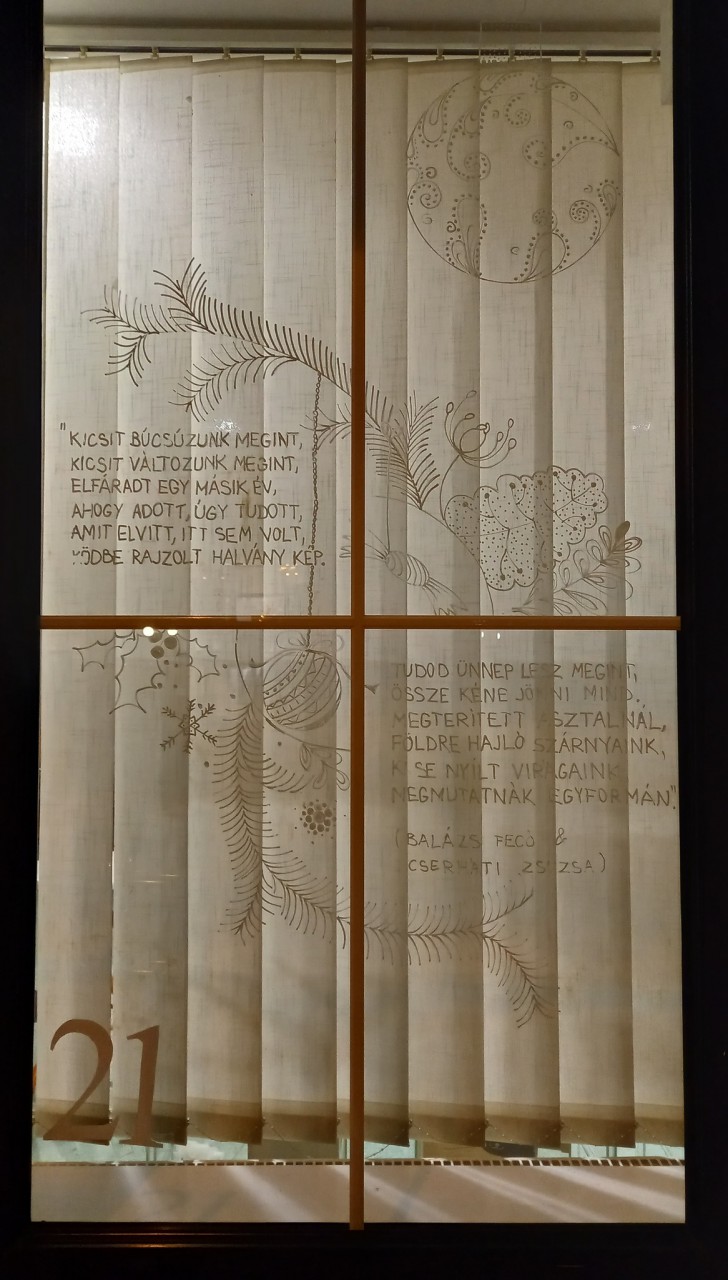 "KICSIT BÚCSÚZUNK MEGINT,
KICSIT VÁLTOZUNK MEGINT,
ELFÁRADT EGY MÁSIK ÉV,
AHOGY ADOTT, ÚGY TUDOTT,
AMIT ELVITT, ITT SEM VOLT,
KÖDBE RAJZOLT HALVÁNY KÉP.
TUDOD ÜNNEP LESZ MEGINT,
ÖSSZE KÉNE JÖNNI MIND.
MEGTERÍTETT ASZTALNÁL,
FÖLDRE HAJLÓ SZÁRNYAINK,
KI SE NYÍLT VIRÁGAINK
MEGMUTATNÁK EGYFORMÁN."
(BALÁZS FECÓ &
CSERHÁTI ZSUZSA)
21